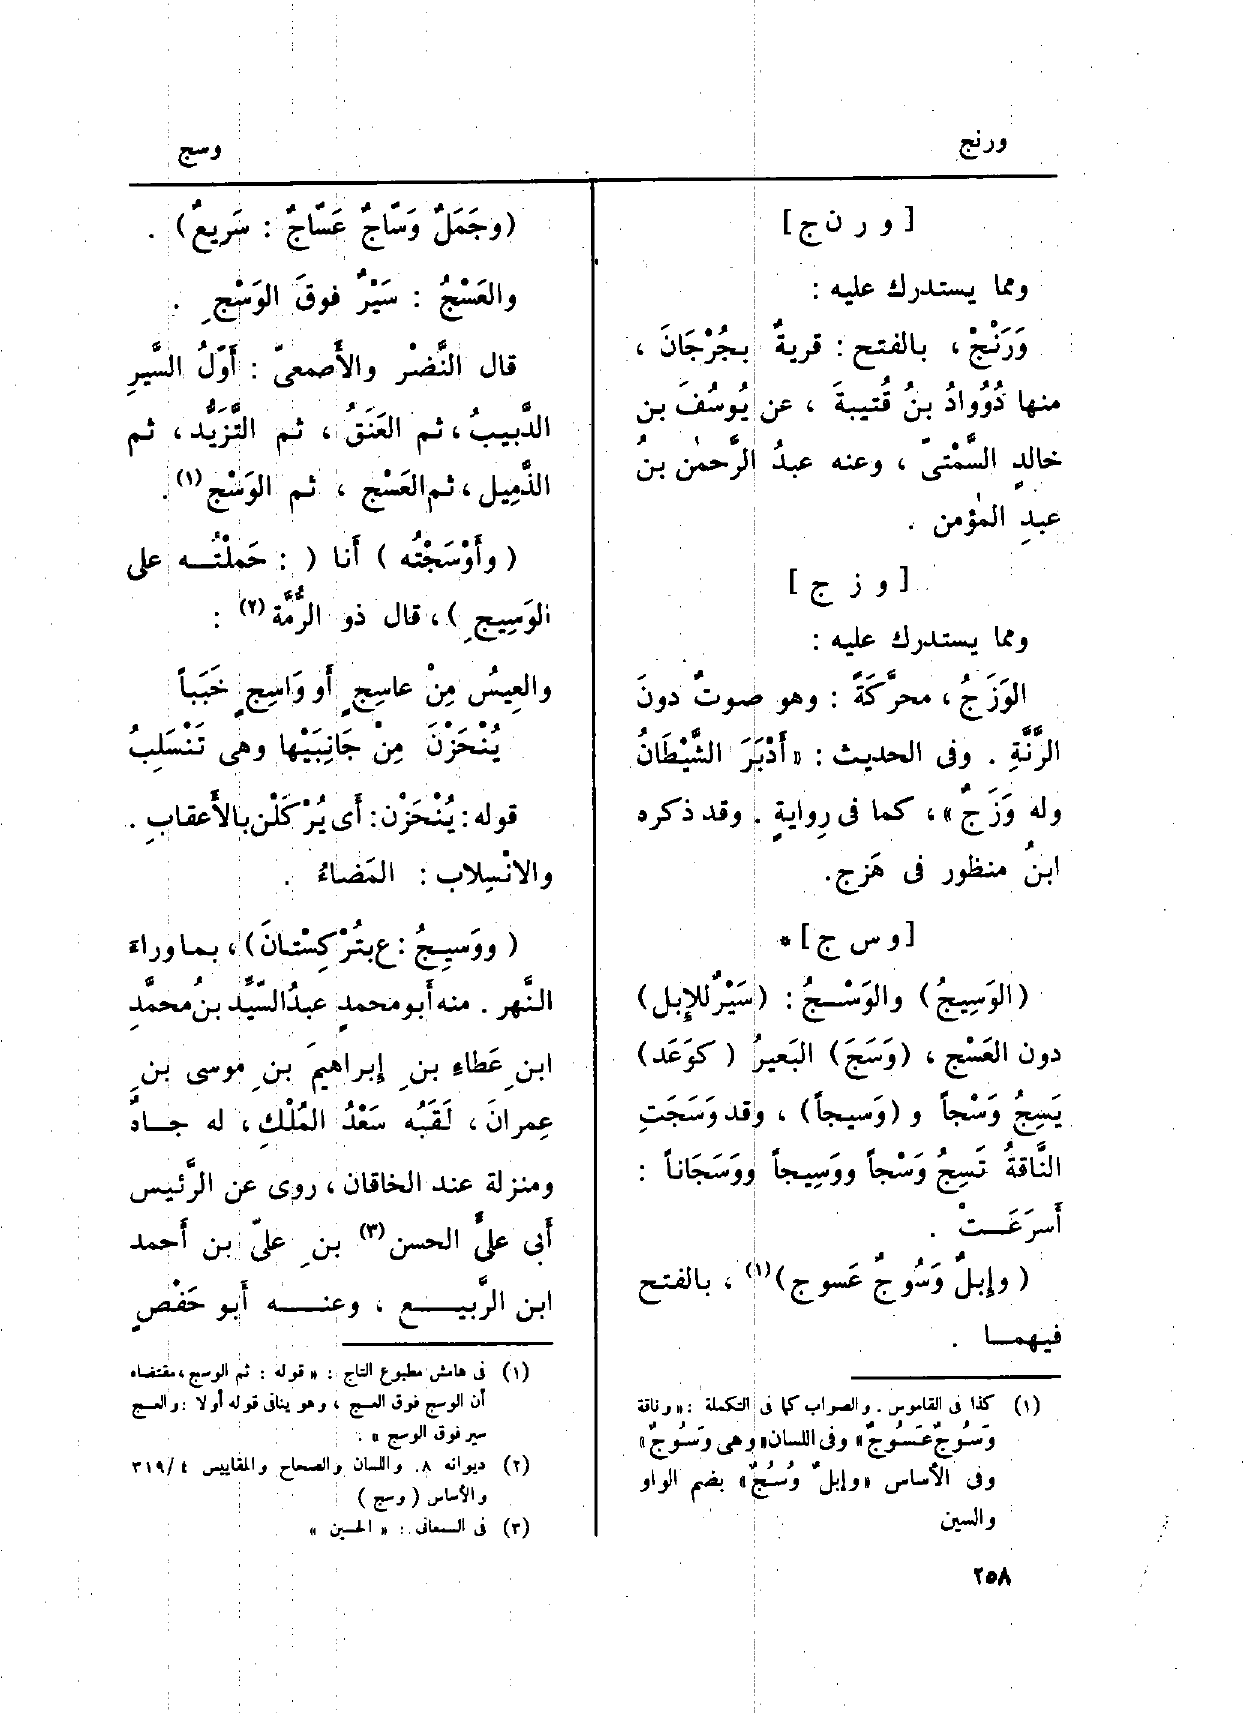 ورنج
وسج
[ و ر ن ج ]
ومما يستدرك عليه :
وَرَنْجُ ، بالفتح : قريةٌ بجُرْجَانَ ،
منها ذُؤُوادُ بنُ قُتيبةَ ، عن يُوسُفَ بن
خالدٍ السَّمْتىّ ، وعنه عبدُ الرَّحمٰن بنُ
عبدِ المؤمن .
[ و ز ج ]
ومما يستدرك عليه :
الوَزَجُ ، محرَّكَةً : وهو صوتٌ دونَ
الرَّنَّةِ . وفى الحديث : « أَدْبَرَ الشَّيْطَانُ
وله وَزَجٌ » ، كما فى رِوايةٍ . وقد ذكره
ابنُ منظور فى هَزج .
[ و س ج ] *
( الوَسِيجُ ) والوَسْـجُ : ( سَيْرٌ للإِبل )
دون العَسْج ، ( وَسَجَ ) البَعيرُ ( كوَعَد )
يَسِجُ وَسْجاً و ( وَسيجاً ) ، وقد وَسَجَتِ
النَّاقةُ تَسِجُ وَسْجاً ووَسِيجاً ووَسَجَاناً :
أَسرَعَـتْ .
( وإبلٌ وَسُوجٌ عَسوج )(١) ، بالفتح
فيهمـا .
(١) كذا فى القاموس . والصواب كما فى التكملة : « وناقة
وَسُوجٌ عَسُوجٌ » وفى اللسان « وهى وَسُوجٌ »
وفى الأساس « وإبلٌ وُسُجٌ » بضم الواو
والسين
( وجَمَلٌ وَسّاجٌ عَسّاجٌ : سَريعٌ ) .
والعَسْجُ : سَيْرٌ فوقَ الوَسْجِ .
قال النَّضْر والأَصمعىّ : أَوّلُ السَّيرِ
الدَّبيبُ ، ثم العَنَقُ ، ثم التَّزَيُّد ، ثم
الذَّمِيل ، ثم العَسْج ، ثم الوَسْج (١) .
( وأَوْسَجْتُه ) أَنا ( : حَملْتُـه على
الوَسِيجِ ) ، قال ذو الرُّمَّة (٢) :
والعِيسُ مِنْ عاسِجٍ أَو وَاسِجٍ خَبَباً
يُنْحَزْنَ مِنْ جَانِبَيْها وهى تَنْسَلِبُ
قوله : يُنْحَزْن : أَى يُرْكَلْن بالأَعقابِ .
والانْسِلاب : المَضاءُ .
( ووَسِيجُ : ع بتُرْكِسْتانَ ) ، بما وراءَ
النَّهر . منه أَبو محمدٍ عبدُ السَّيِّد بنُ محمَّدِ
ابنِ عَطاءِ بنِ إبراهيمَ بنِ موسى بنِ
عِمرانَ ، لَقَبُه سَعْدُ المُلْكِ ، له جـاهٌ
ومنزلة عند الخاقان ، روى عن الرَّئيس
أَبى علىٍّ الحسن (٣) بنِ علىّ بن أَحمد
ابن الرَّبيـع ، وعنـه أَبو حَفْصٍ
(١) فى هامش مطبوع التاج : « قوله : ثم الوسج ، مقتضاه
أن الوسج فوق العسج ، وهو ينافى قوله أولا : والعسج
سير فوق الوسج » .
(٢) ديوانه ٨ . واللسان والصحاح والمقاييس ٣١٩/٤
والأساس ( وسج )
(٣) فى السمعانى : « الحسين »
٢٥٨